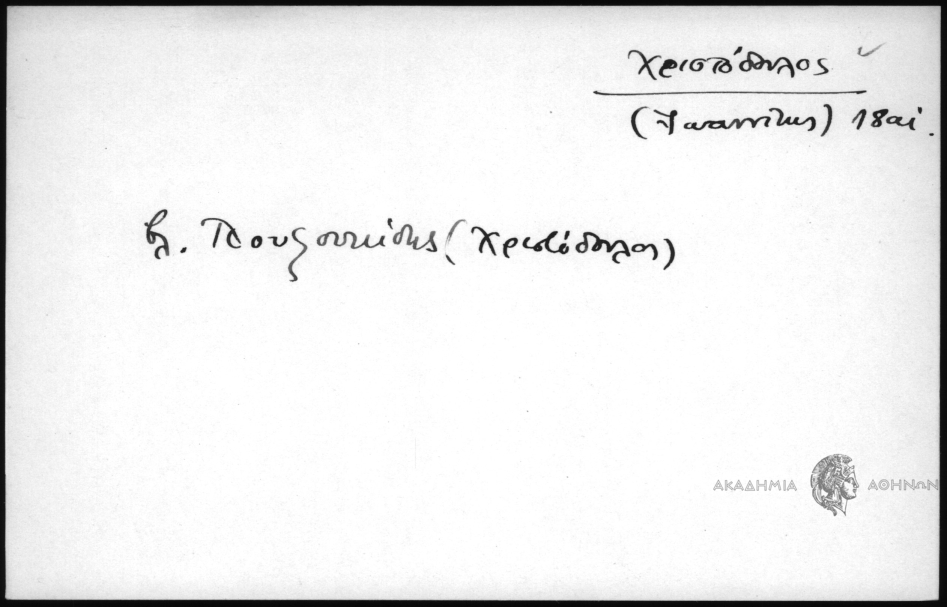 Χριστόδουλος
(Ἰωαννίτης) 18 αἰ.
βλ. Πουζουκίδης (Χριστόδουλος)
ΑΚΑΔΗΜΙΑ ΑΘΗΝΩΝ